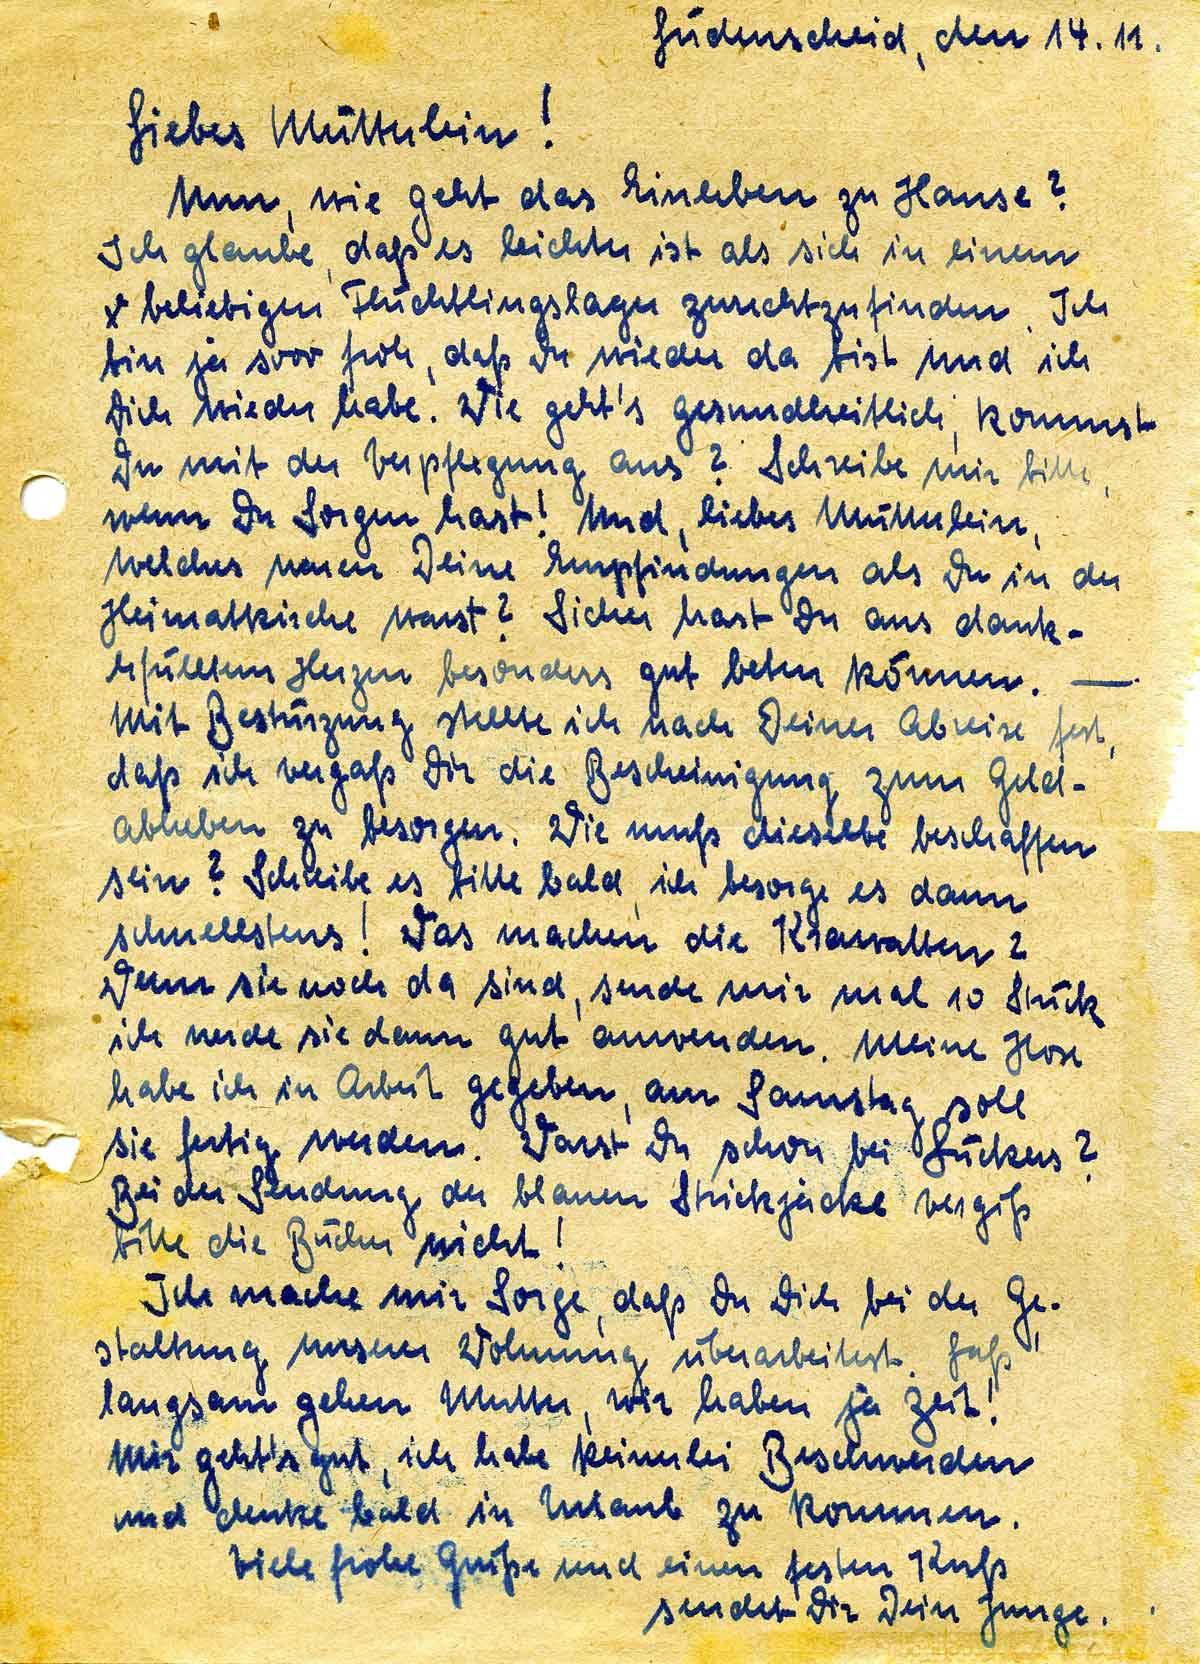 Lüdenscheid, den 14. 11.
Liebes Mütterlein!
Nun, wie geht das Einleben zu Hause?
Ich glaube, daß es leichter ist als sich in einem
x beliebigen Flüchtlingslager zurechtzufinden. Ich
bin ja sooo froh, daß Du wieder da bist und ich
Dich wieder habe. Wie geht's gesundheitlich, kommst
Du mit der Verpflegung aus? Schreibe mir bitte,
wenn Du Sorgen hast! Und, liebes Mütterlein,
welches waren Deine Empfindungen als Du in der
Heimatkirche warst? Sicher hast Du aus dank-
erfülltem Herzen besonders gut beten können. —
Mit Bestürzung stellte ich nach Deiner Abreise fest,
daß ich vergaß Dir die Bescheinigung zum Geld-
abheben zu besorgen. Wie muß dieselbe beschaffen
sein? Schreibe es bitte bald, ich besorge es dann
schnellstens! Was machen die Krawatten?
Wenn sie noch da sind, sende mir mal 10 Stück
ich werde sie dann gut anwenden. Meine Hose
habe ich in Arbeit gegeben, am Samstag soll
sie fertig werden. Warst Du schon bei Lückers?
Bei der Sendung der blauen Strickjacke vergiß
bitte die Bücher nicht!
Ich mache mir Sorge, daß Du Dich bei der Ge-
staltung unserer Wohnung überarbeitest. Laß
langsam gehen Mutter, wir haben ja Zeit!
Mir geht's gut, ich habe keinerlei Beschwerden
und denke bald in Urlaub zu kommen.
Viele frohe Grüße und einen festen Kuß
sendet Dir Dein Junge.